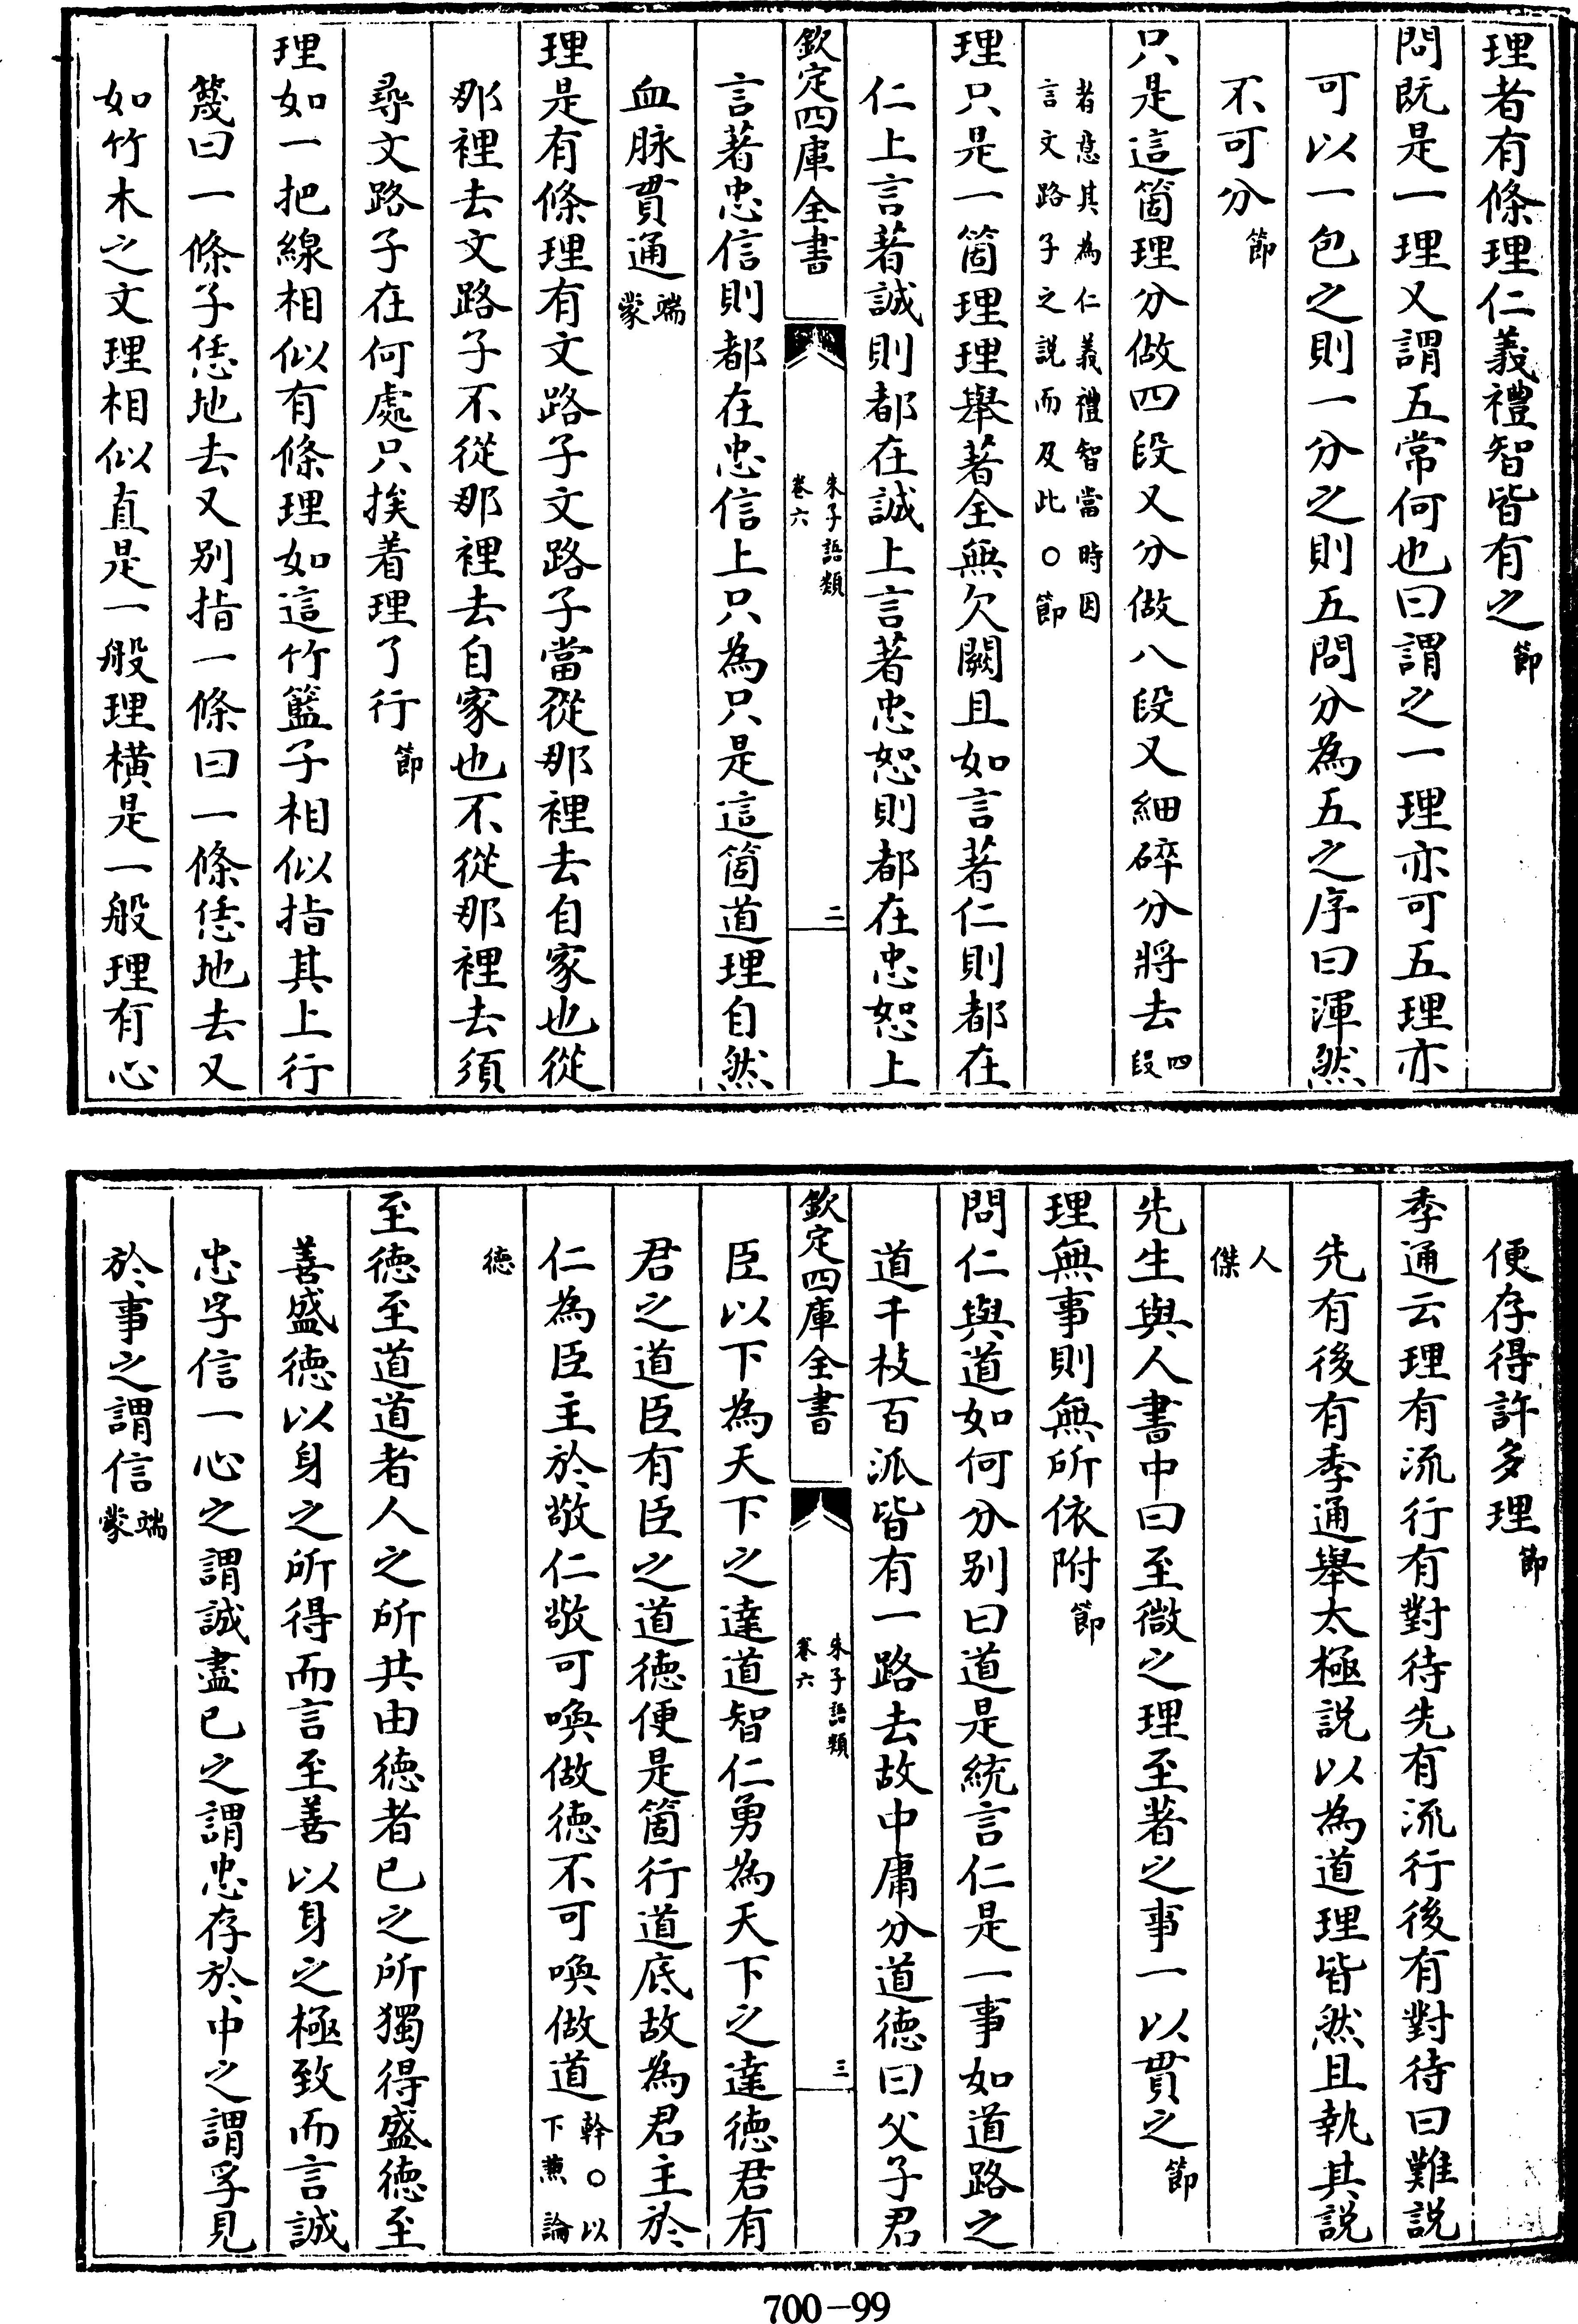 理者有條理仁義禮智皆有之節
問既是一理又謂五常何也曰謂之一理亦可五理亦
可以一包之則一分之則五問分為五之序曰渾然
不可分節
只是這箇理分做四段又分做八段又細碎分將去四段
者意其為仁義禮智當時因言文路子之説而及此○節
理只是一箇理理舉著全無欠闕且如言著仁則都在
仁上言著誠則都在誠上言著忠恕則都在忠恕上
欽定四庫全書
朱子語類
卷六
二
言著忠信則都在忠信上只為只是這箇道理自然
血脉貫通端蒙
理是有條理有文路子文路子當從那裡去自家也從
那裡去文路子不從那裡去自家也不從那裡去須
尋文路子在何處只挨着理了行節
理如一把線相似有條理如這竹籃子相似指其上行
篾曰一條子恁地去又别指一條曰一條恁地去又
如竹木之文理相似直是一般理横是一般理有心
便存得許多理節
季通云理有流行有對待先有流行後有對待曰難説
先有後有季通舉太極説以為道理皆然且執其説
人傑
先生與人書中曰至微之理至著之事一以貫之節
理無事則無所依附節
問仁與道如何分别曰道是統言仁是一事如道路之
道千枝百派皆有一路去故中庸分道德曰父子君
欽定四庫全書
朱子語類
卷六
三
臣以下為天下之達道智仁勇為天下之達德君有
君之道臣有臣之道德便是箇行道底故為君主於
仁為臣主於敬仁敬可喚做德不可喚做道幹○以下兼論
德
至德至道道者人之所共由德者己之所獨得盛德至
善盛德以身之所得而言至善以身之極致而言誠
忠孚信一心之謂誠盡己之謂忠存於中之謂孚見
於事之謂信端蒙
700-99